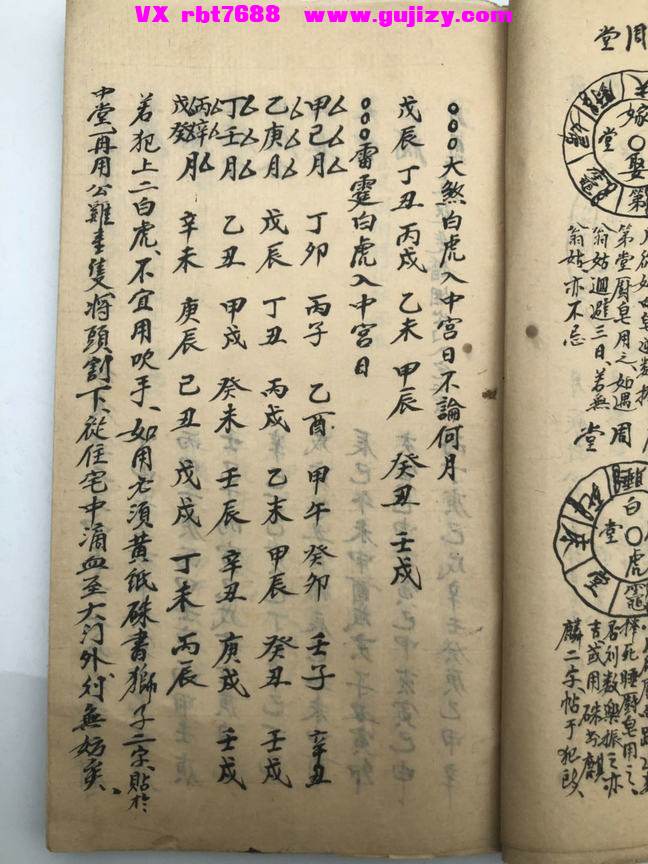 VX rbt7688 www.gujizy.com
○○○大煞白虎入中宫日不論何月
戊辰 丁丑 丙戌 乙未 甲辰 癸丑 壬戌
○○○雷霆白虎入中宫日
甲己月 丁卯 丙子 乙酉 甲午 癸卯 壬子 辛丑
乙庚月 戊辰 丁丑 丙戌 乙未 甲辰 癸丑 壬戌
丁壬月 乙丑 甲戌 癸未 壬辰 辛丑 庚戌 壬戌
丙辛戊癸月 辛未 庚辰 己丑 戊戌 丁未 丙辰
若犯上二白虎、不宜用吹手、如用必須黄紙硃書獅子二字、貼於
中堂、再用公雞壹隻将頭割下、從住宅中滴血至大门外、則無妨矣、
周
堂
嫁
娶
堂
第
第堂厨皂用之、如遇
翁姑迴避三日、若無
翁姑、亦不忌
周
堂
白
虎
堂
睡
堂
择死睡厨皂用之、
吉或用硃書麒
麟二字、帖于犯